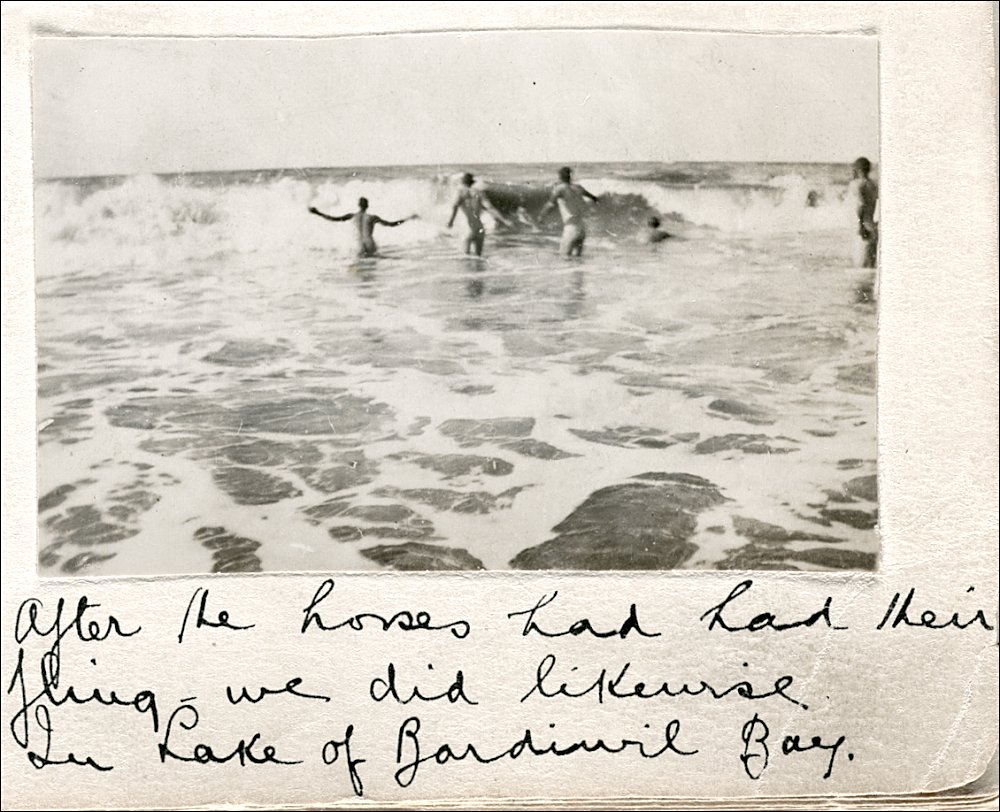 After the horses had had their
fling - we did likewise.
In Lake of Bardiwil Bay.